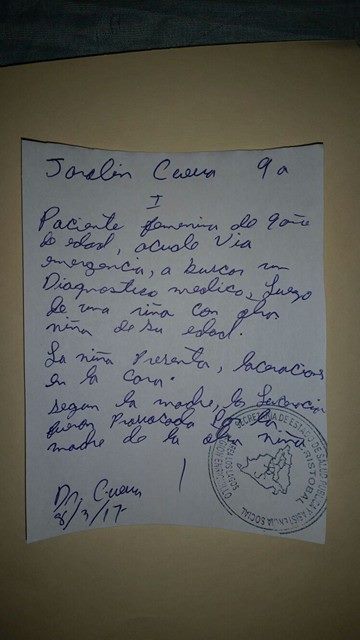 Joralin Cueva 9 a
I
Paciente femenina de 9 años
de edad, acude Via
emergencia, a buscar un
Diagnostico medico, Luego
de una riña con otra
niña de su edad.
La niña Presenta, laceraciones
en la Cara.
segun la madre, la Laceracion
fueron Provocada Por la
madre de la otra niña
Dr. Cueva
8/3/17
SECRETARIA DE ESTADO DE SALUD PUBLICA Y ASISTENCIA SOCIAL
CRISTOBAL